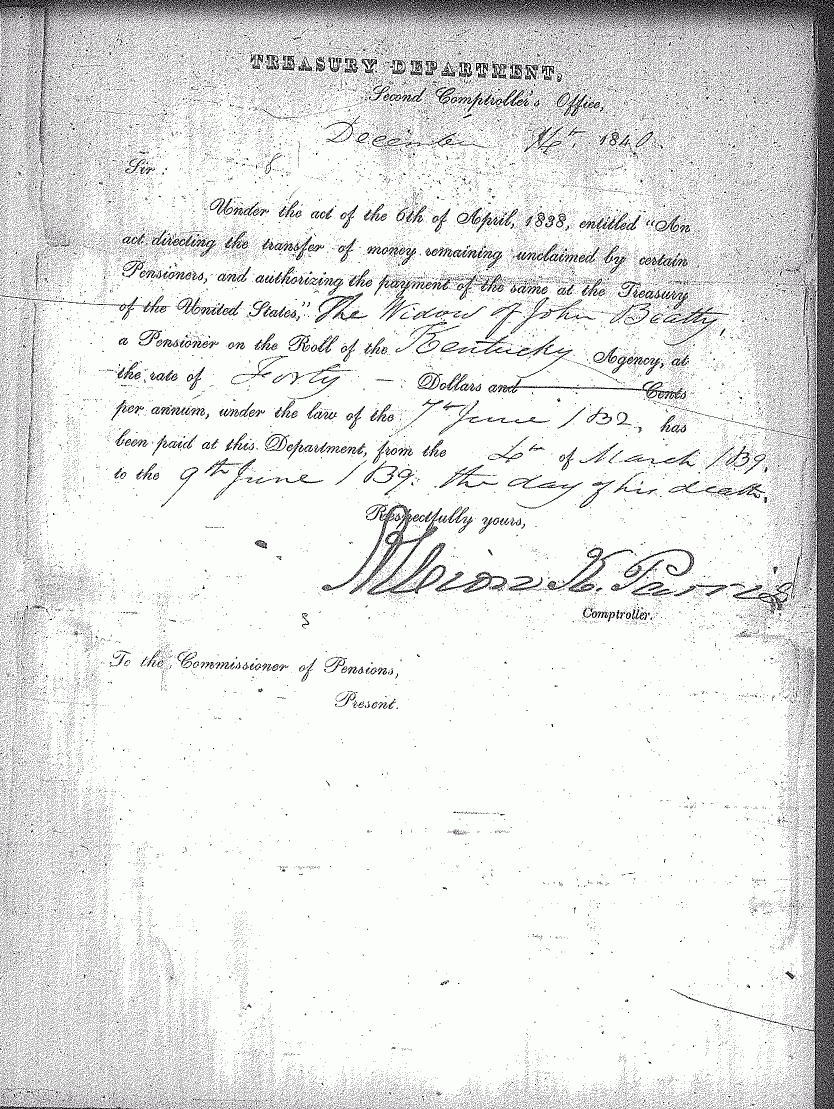 TREASURY DEPARTMENT,
Second Comptroller's Office,
December 1840.
Sir:
Under the act of the 6th of April, 1838, entitled "An
act directing the transfer of money remaining unclaimed by certain
Pensioners, and authorizing the payment of the same at the Treasury
of the United States," The Widow of John Beatty,
a Pensioner on the Roll of the Kentucky Agency, at
the rate of Forty — Dollars and Cents
per annum, under the law of the 7th June 1832, has
been paid at this Department, from the 4th of March 1839.
to the 9th June 1839. the day of his death.
Respectfully yours,
Albion K. Parris
Comptroller.
To the Commissioner of Pensions,
Present.